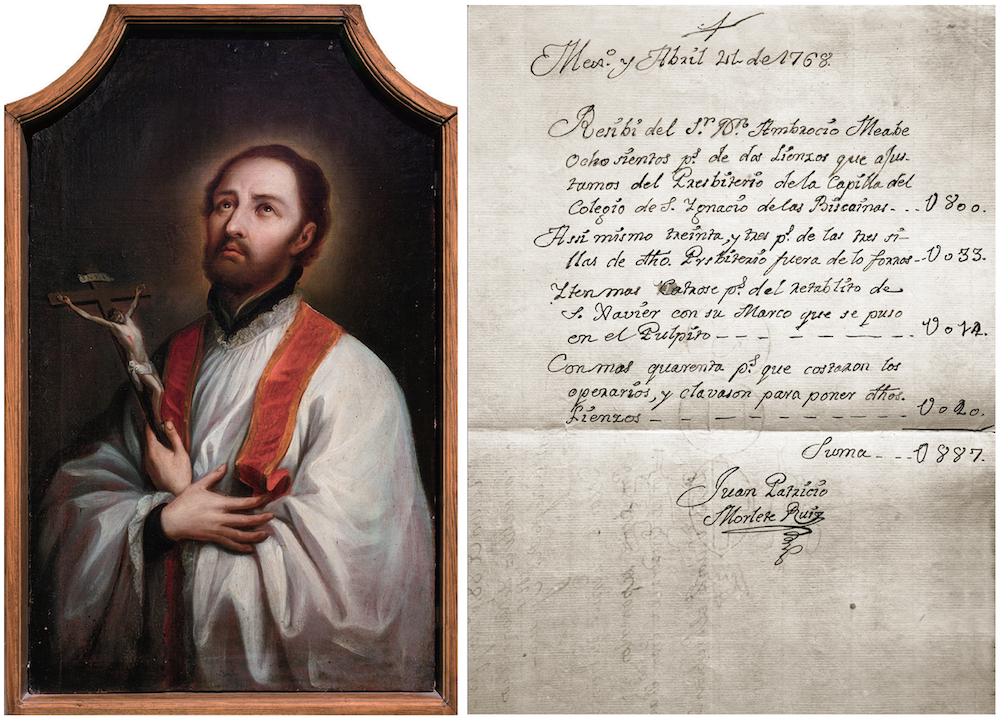 Mexo. y Abril 21 de 1768.
Resibi del Sr. Dn. Ambrocio Meabe
Ocho sientos ps. de dos Lienzos que ajus-
tamos del Presbiterio de la Capilla del
Colegio de S. Ygnacio de las Biscainas - - - U800.
Assi mismo treinta, y tres ps. de las tres si-
llas de dho. Presbiterio fuera de lo forros - U033.
Yten mas Catrose ps. del retablito de
S. Xavier con su Marco que se puso
en el Pulpito - - - - - - - U014.
Con mas quarenta ps. que costaron los
operarios, y clavason para poner dhos.
Lienzos - - - - - - - - - - U040.
Suma - - - U887.
Juan Patricio
Morlete Ruiz